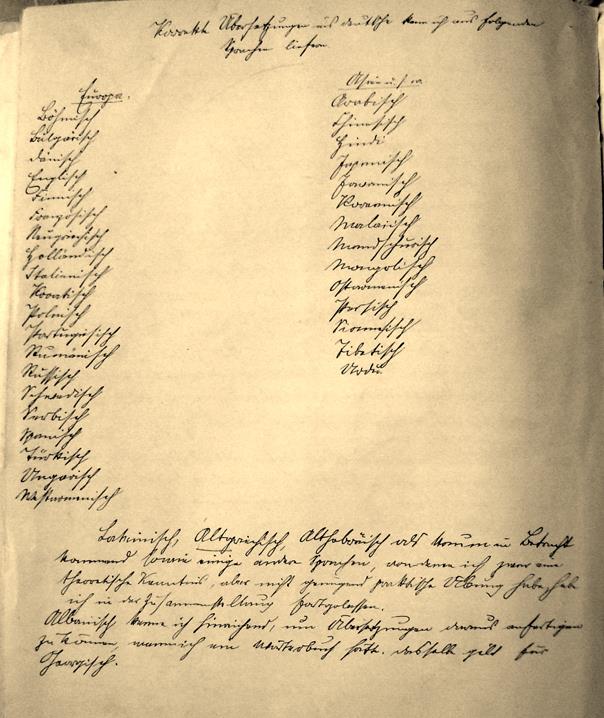 Korrekte Übersetzungen ins deutsche kann ich aus folgenden
Sprachen liefern
Europa.
Böhmisch
Bulgärisch
Dänisch
Englisch
Finnisch
Französisch
Neugriechisch
Holländisch
Italienisch
Kroatisch
Polnisch
Portugiesisch
Rumänisch
Russisch
Schwedisch
Serbisch
Spanisch
Türkisch
Ungarisch
Westarmenisch
Asien u.s.w.
Arabisch
Chinesisch
Hindi
Japanisch
Javanisch
Koreanisch
Malaiisch
Mandschurisch
Mongolisch
Ostarmenisch
Persisch
Siamesisch
Tibetisch
Urdu.
Lateinisch, Altgriechisch, Althebräisch als kaum in Betracht
kommend sowie einige andere Sprachen, von denen ich zwar eine
theoretische Kenntnis, aber nicht genügend praktische Übung habe, habe
ich in der Zusammenstellung fortgelassen.
Albanisch kenne ich hinreichend, um Übersetzungen daraus anfertigen
zu können, wenn ich ein Wörterbuch hätte. dasselbe gilt für
Georgisch.